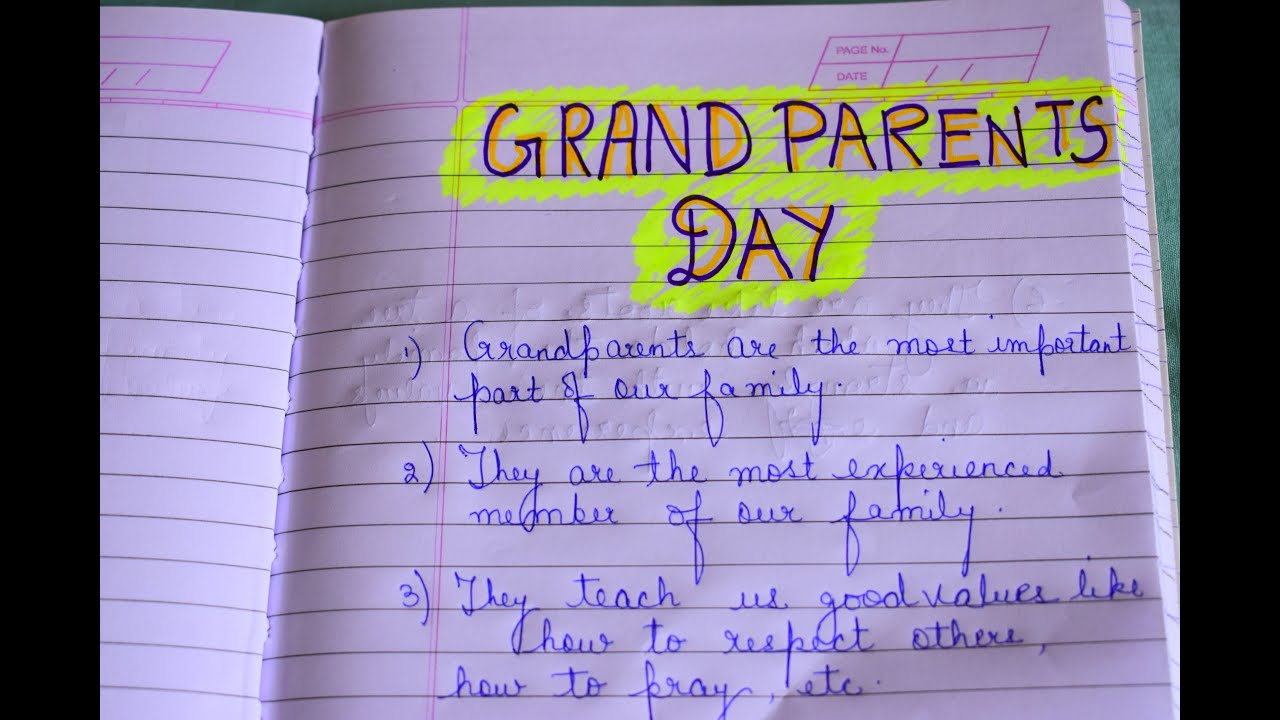 PAGE No.
DATE
GRAND PARENTS
DAY
1) Grandparents are the most important
part of our family.
2) They are the most experienced
member of our family.
3) They teach us good values like
how to respect others,
how to pray, etc.